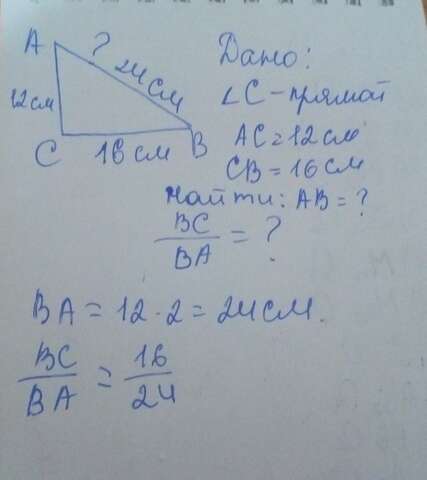 A
?
24см
12см
C
16 см
B
Дано:
∠C - прямой
AC = 12 см
CB = 16 см
Найти: AB = ?
BC
BA
= ?
BA = 12 · 2 = 24 см.
BC
BA
=
16
24